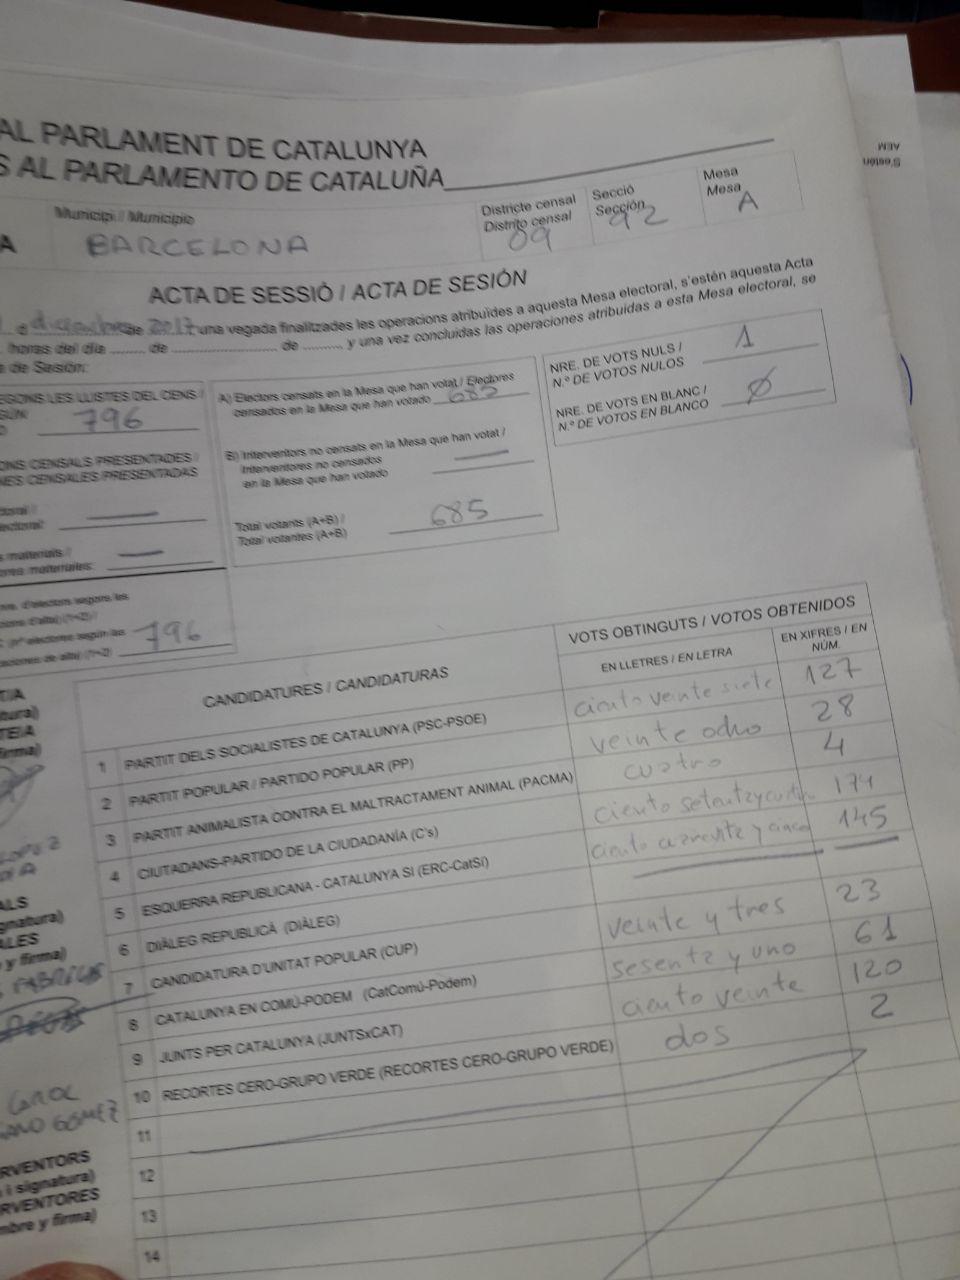 AL PARLAMENT DE CATALUNYA
S AL PARLAMENTO DE CATALUÑA
AEM
S'estén
A
Municipi / Municipio
BARCELONA
Districte censal
Distrito censal
09
Secció
Sección
92
Mesa
Mesa
A
ACTA DE SESSIÓ / ACTA DE SESIÓN
de 2017, una vegada finalitzades les operacions atribuïdes a aquesta Mesa electoral, s'estén aquesta Acta
horas del día ........ de ........................ de ........, y una vez concluidas las operaciones atribuidas a esta Mesa electoral, se
a de Sesión:
EGONS LES LLISTES DEL CENS /
GÚN
O 796
ONS CENSALS PRESENTADES /
NES CENSALES PRESENTADAS
ctoral /
lectoral:
s materials /
ores materiales:
796
A) Electors censats en la Mesa que han votat / Electores
censados en la Mesa que han votado 685
B) Interventors no censats en la Mesa que han votat /
Interventores no censados
en la Mesa que han votado
Total votants (A+B) /
Total votantes (A+B) 685
NRE. DE VOTS NULS /
N.º DE VOTOS NULOS 1
NRE. DE VOTS EN BLANC /
N.º DE VOTOS EN BLANCO Ø
CANDIDATURES / CANDIDATURAS
VOTS OBTINGUTS / VOTOS OBTENIDOS
EN LLETRES / EN LETRA
EN XIFRES / EN NÚM.
1 PARTIT DELS SOCIALISTES DE CATALUNYA (PSC-PSOE) ciento veinte siete 127
2 PARTIT POPULAR / PARTIDO POPULAR (PP) veinte ocho 28
3 PARTIT ANIMALISTA CONTRA EL MALTRACTAMENT ANIMAL (PACMA) cuatro 4
4 CIUTADANS-PARTIDO DE LA CIUDADANÍA (C's) ciento setenta y cuatro 174
5 ESQUERRA REPUBLICANA - CATALUNYA SI (ERC-CatSí) ciento cuarenta y cinco 145
6 DIÀLEG REPUBLICÀ (DIÀLEG)
7 CANDIDATURA D'UNITAT POPULAR (CUP) veinte y tres 23
8 CATALUNYA EN COMÚ-PODEM (CatComú-Podem) sesenta y uno 61
9 JUNTS PER CATALUNYA (JUNTSxCAT) ciento veinte 120
10 RECORTES CERO-GRUPO VERDE (RECORTES CERO-GRUPO VERDE) dos 2
11
12
13
14
gnatura)
y firma)
GOMEZ
RVENTORS
i signatura)
RVENTORES
mbre y firma)